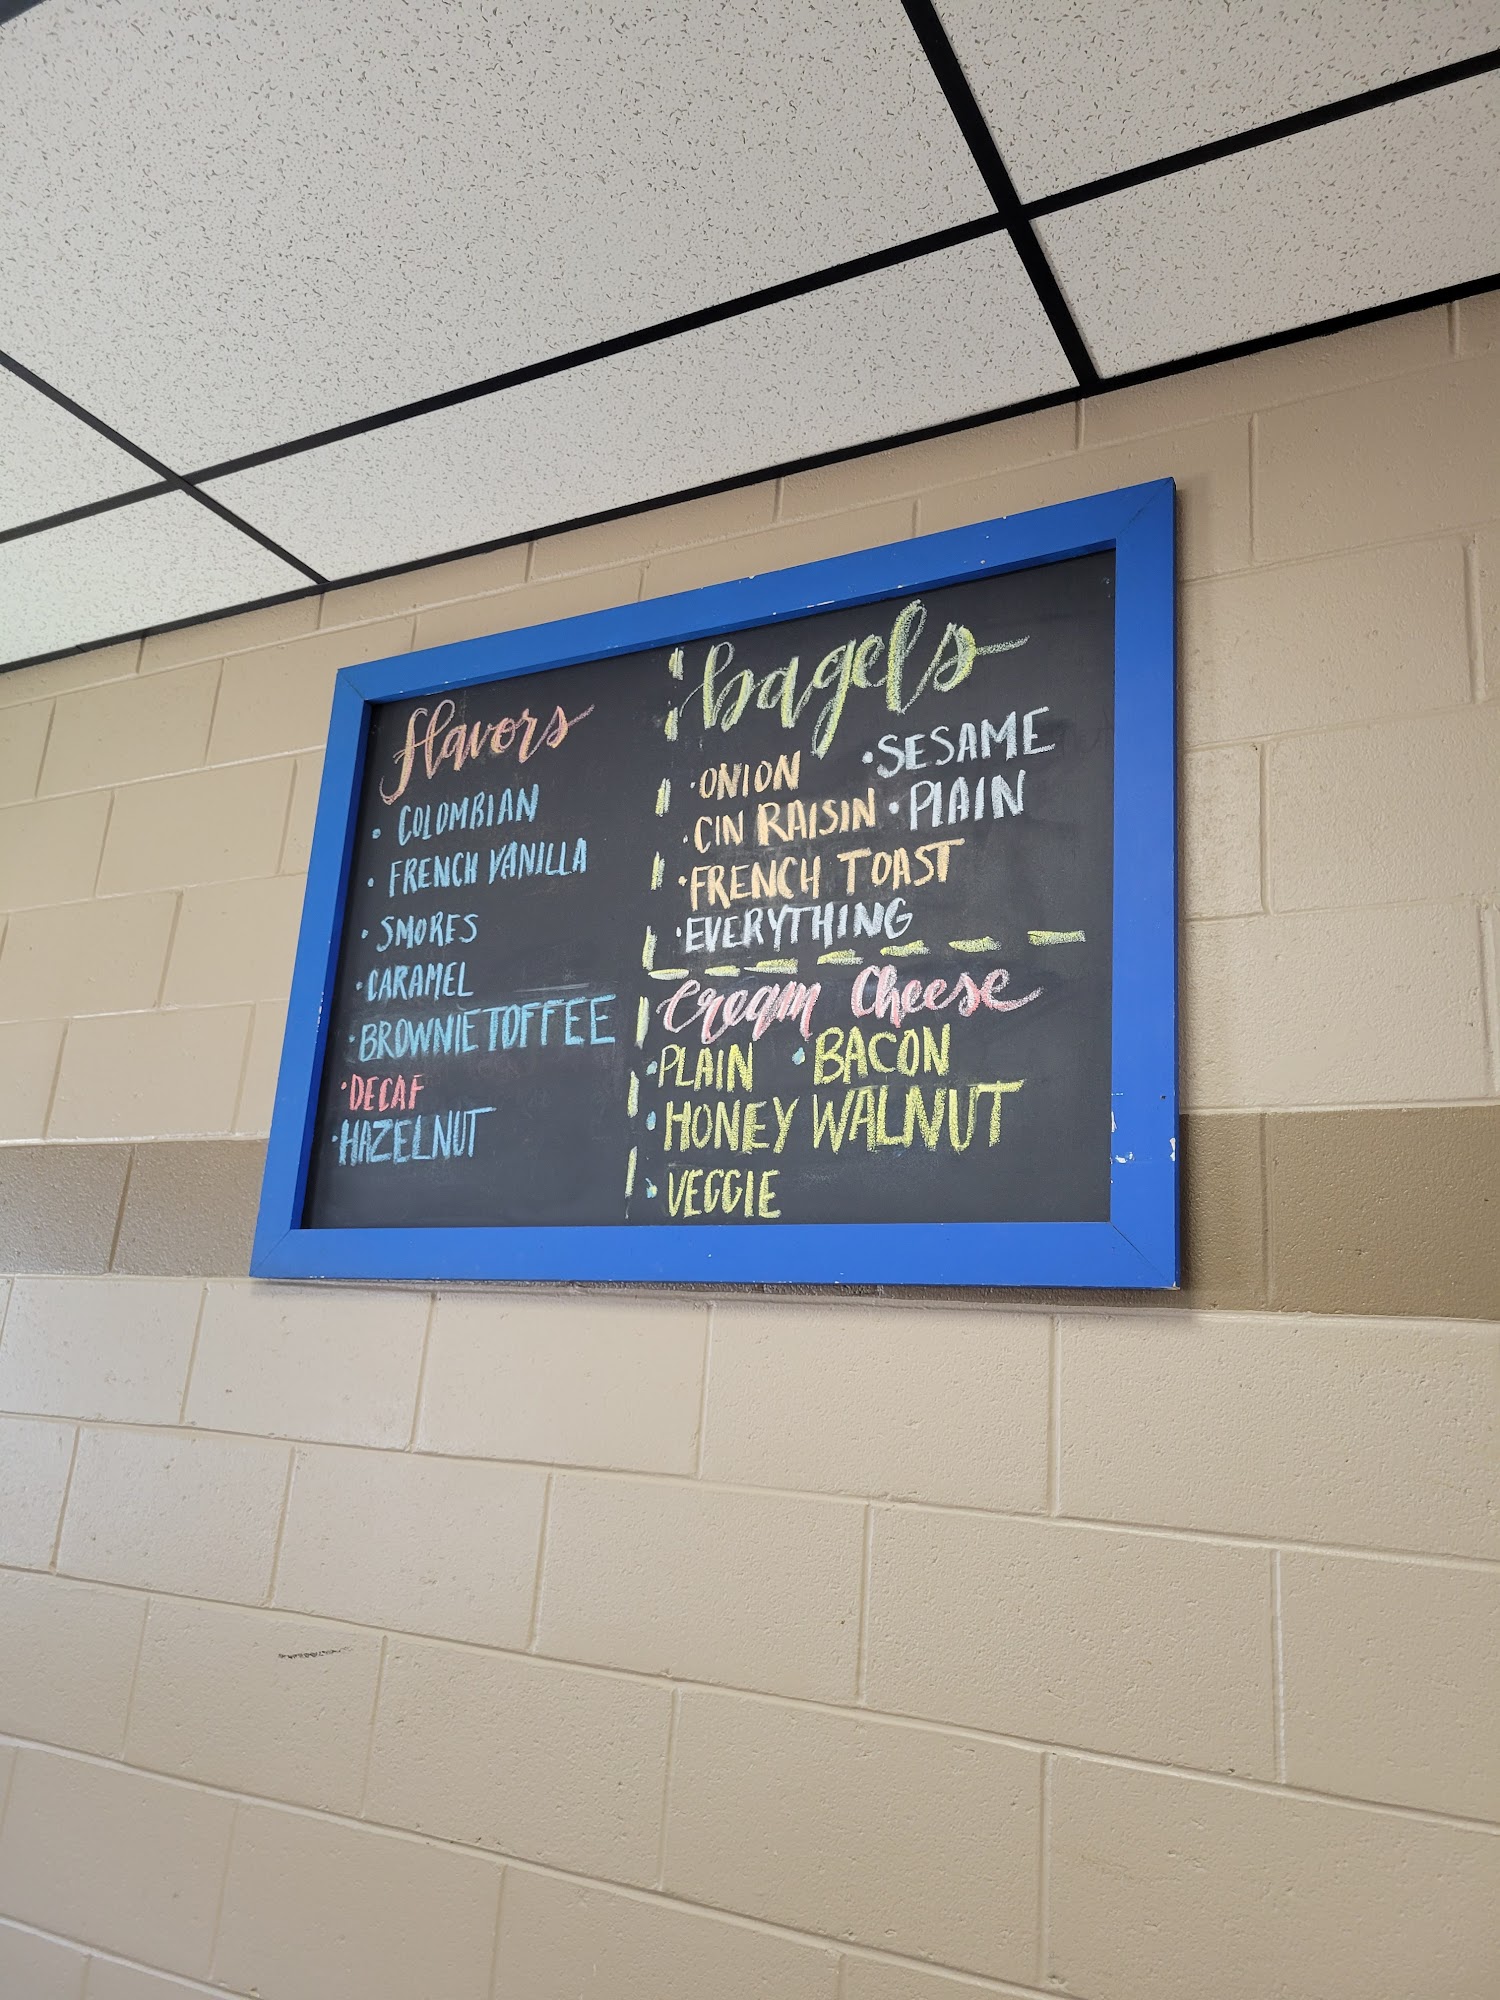 flavors
• COLOMBIAN
• FRENCH VANILLA
• SMORES
• CARAMEL
• BROWNIE TOFFEE
• DECAF
• HAZELNUT
bagels
• ONION • SESAME
• CIN RAISIN • PLAIN
• FRENCH TOAST
• EVERYTHING
Cream Cheese
• PLAIN • BACON
• HONEY WALNUT
• VEGGIE